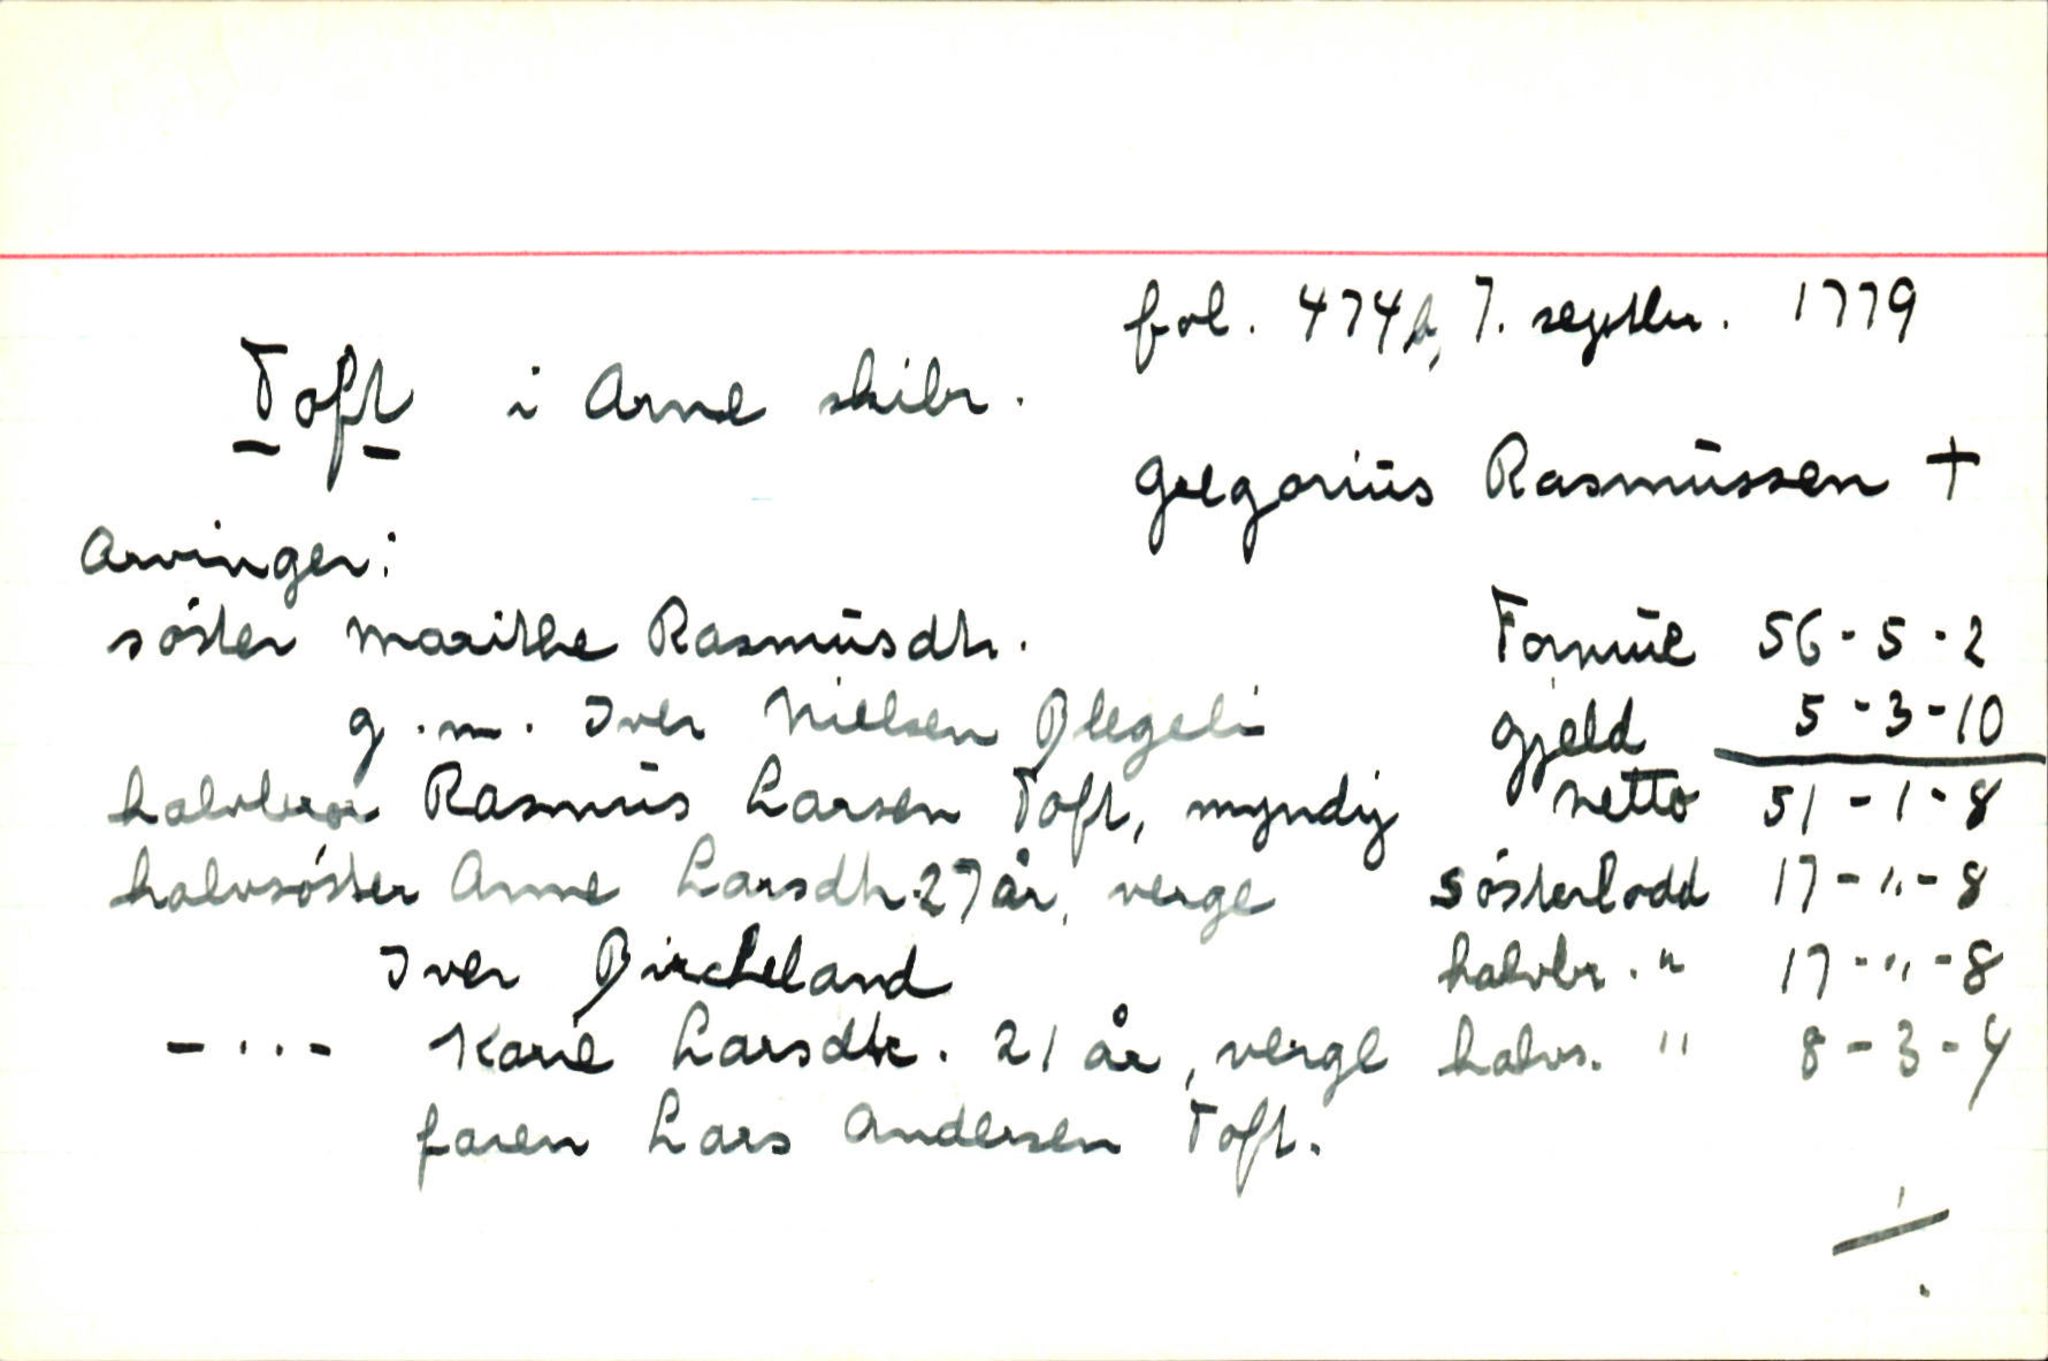 fol. 474b, 7. septbr. 1779
Toft i Arne skibr.
Gregorius Rasmussen +
Arvinger:
söster Marithe Rasmusdtr. Formue 56 - 5 - 2
g. m. Iver Nielsen Blegeli Gjeld 5 - 3 - 10
halvbror Rasmus Larsen Toft, myndig Netto 51 - 1 - 8
halvsöster Anne Larsdtr. 27 år, verge Sösterlodd 17 - " - 8
Iver Bircheland halvbr. " 17 - " - 8
- " - Karie Larsdtr. 21 år, verge halvs. " 8 - 3 - 4
faren Lars Andersen Toft.